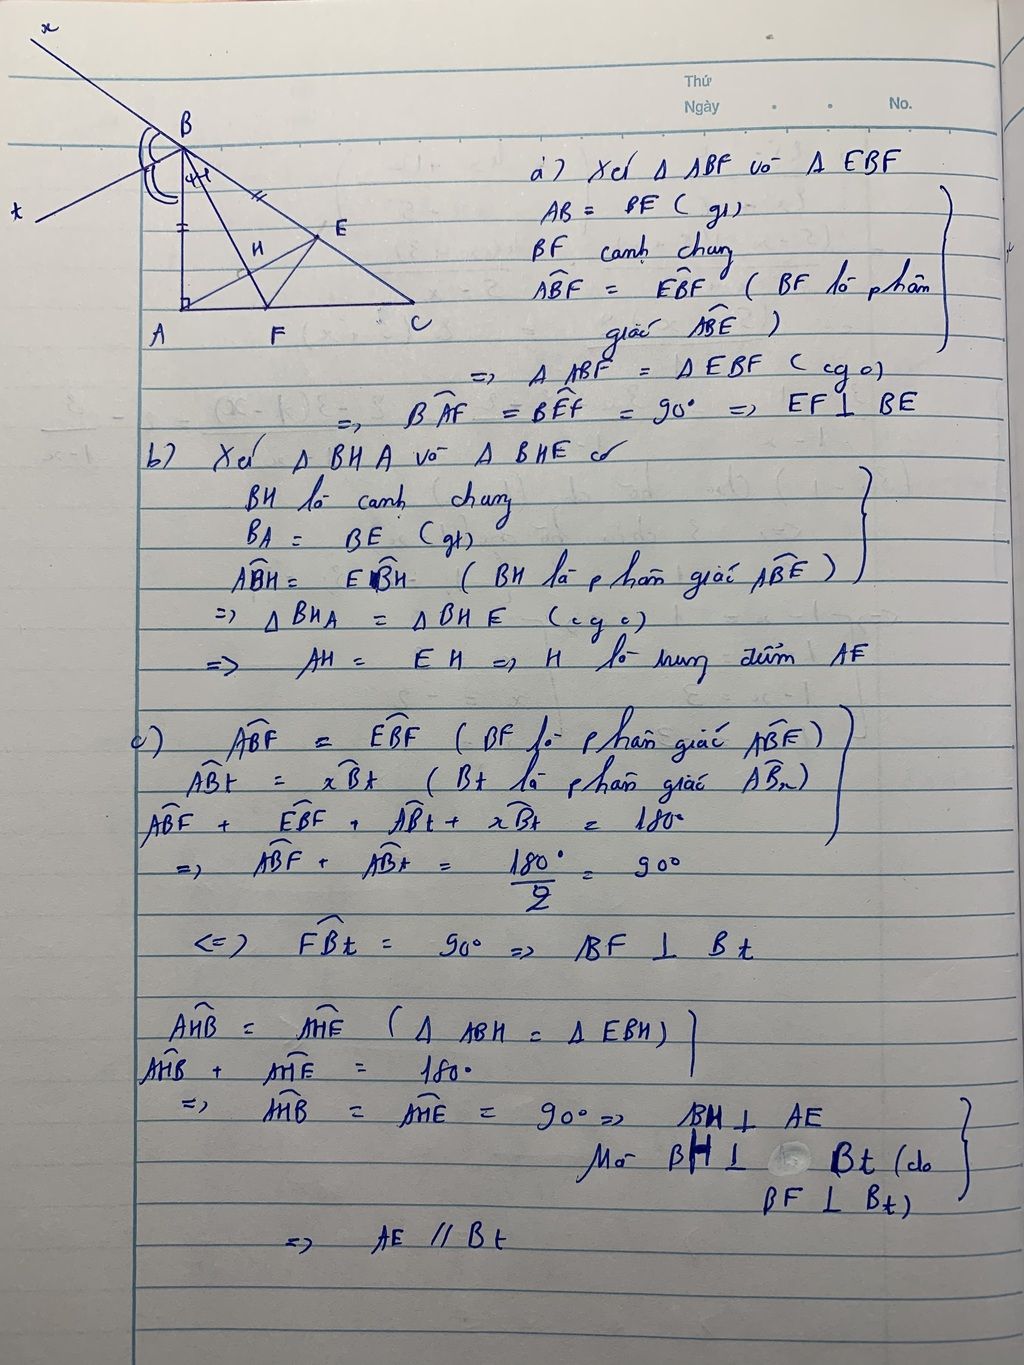 x
Thứ
Ngày . . No.
B
t
H
E
A
F
C
a) Xét Δ ABF và Δ EBF
AB = BE ( gt )
BF cạnh chung
ABF = EBF ( BF là phân
giác ABE )
=> Δ ABF = Δ EBF ( cgc)
=> BAF = BEF = 90° => EF ⊥ BE
b) Xét Δ BHA và Δ BHE có
BH là cạnh chung
BA = BE ( gt)
ABH = EBH ( BH là phân giác ABE )
=> Δ BHA = Δ BHE ( cgc)
=> AH = EH => H là trung điểm AE
c) ABF = EBF ( BF là phân giác ABE )
ABt = xBt ( Bt là phân giác ABx)
ABF + EBF + ABt + xBt = 180°
=> ABF + ABt = 180°/2 = 90°
<=> FBt = 90° => BF ⊥ Bt
AHB = AHE ( Δ ABH = Δ EBH )
AHB + AHE = 180°
=> AHB = AHE = 90° => BH ⊥ AE
Mà BH ⊥ Bt (do
BF ⊥ Bt)
=> AE // Bt